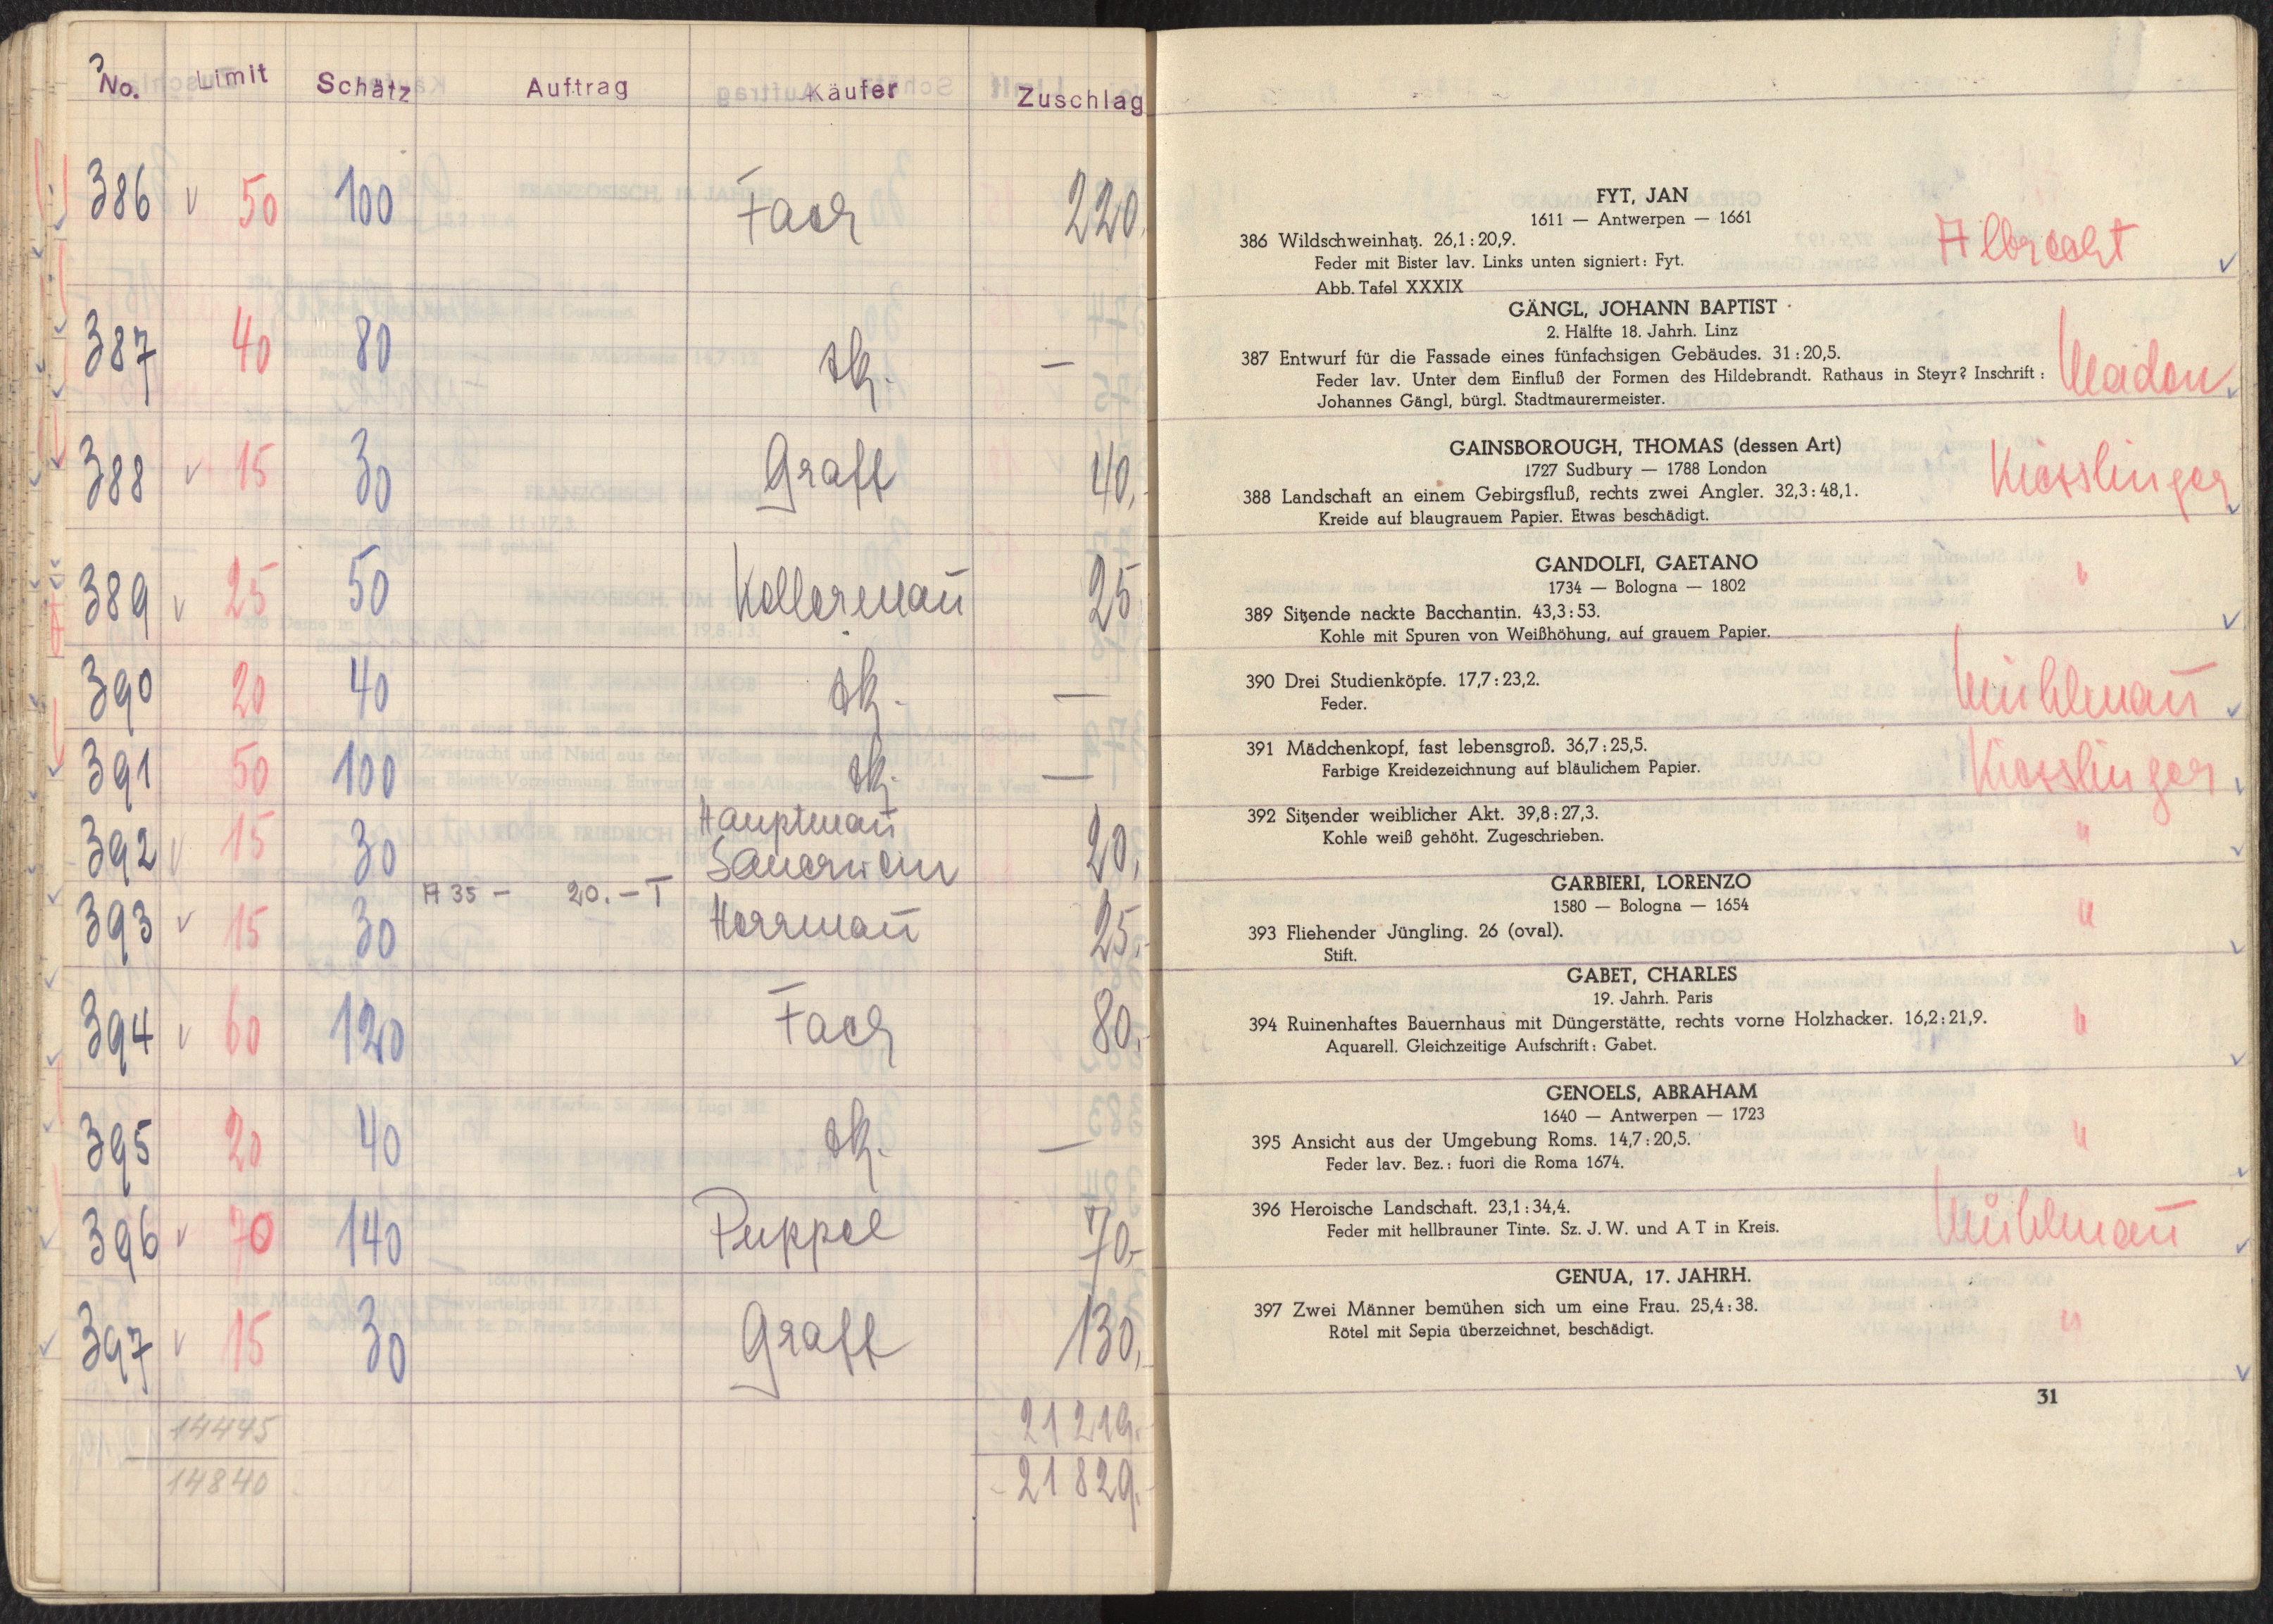 No. Limit Schätz Auftrag Käufer Zuschlag
386 v 50 100 Fach 220.
387 40 80 zk. —
388 v 15 30 Graff 40.-
389 v 25 50 Kellermañ 25
390 20 40 zk. —
391 50 100 zk. —
392 v 15 30 Hauptmañ
Sauerwein 20.
A 35 — 20.— T
393 v 15 30 Herrmañ 25.-
394 v 60 120 Fach 80.-
395 20 40 zk. —
396 v 70 140 Puppel 70.-
397 v 15 30 Graff 130.
14445 21 219.
14840 21 829.
FYT, JAN
1611 — Antwerpen — 1661
386 Wildschweinhatz. 26,1 : 20,9. Albrecht
Feder mit Bister lav. Links unten signiert: Fyt.
Abb. Tafel XXXIX
GÄNGL, JOHANN BAPTIST
2. Hälfte 18. Jahrh. Linz
387 Entwurf für die Fassade eines fünfachsigen Gebäudes. 31 : 20,5.
Feder lav. Unter dem Einfluß der Formen des Hildebrandt. Rathaus in Steyr? Inschrift :
Johannes Gängl, bürgl. Stadtmaurermeister.
GAINSBOROUGH, THOMAS (dessen Art)
1727 Sudbury — 1788 London
388 Landschaft an einem Gebirgsfluß, rechts zwei Angler. 32,3 : 48,1. Kiesslinger
Kreide auf blaugrauem Papier. Etwas beschädigt.
GANDOLFI, GAETANO
1734 — Bologna — 1802
389 Sitzende nackte Bacchantin. 43,3 : 53. "
Kohle mit Spuren von Weißhöhung, auf grauem Papier.
390 Drei Studienköpfe. 17,7 : 23,2. Mühlmañ
Feder.
391 Mädchenkopf, fast lebensgroß. 36,7 : 25,5. Kiesslinger
Farbige Kreidezeichnung auf bläulichem Papier.
392 Sitzender weiblicher Akt. 39,8 : 27,3. "
Kohle weiß gehöht. Zugeschrieben.
GARBIERI, LORENZO
1580 — Bologna — 1654 "
393 Fliehender Jüngling. 26 (oval).
Stift.
GABET, CHARLES
19. Jahrh. Paris
394 Ruinenhaftes Bauernhaus mit Düngerstätte, rechts vorne Holzhacker. 16,2 : 21,9. "
Aquarell. Gleichzeitige Aufschrift : Gabet.
GENOELS, ABRAHAM
1640 — Antwerpen — 1723
395 Ansicht aus der Umgebung Roms. 14,7 : 20,5. "
Feder lav. Bez. : fuori die Roma 1674.
396 Heroische Landschaft. 23,1 : 34,4. Mühlmañ
Feder mit hellbrauner Tinte. Sz. J. W. und A T in Kreis.
GENUA, 17. JAHRH.
397 Zwei Männer bemühen sich um eine Frau. 25,4 : 38. "
Rötel mit Sepia überzeichnet, beschädigt.
31